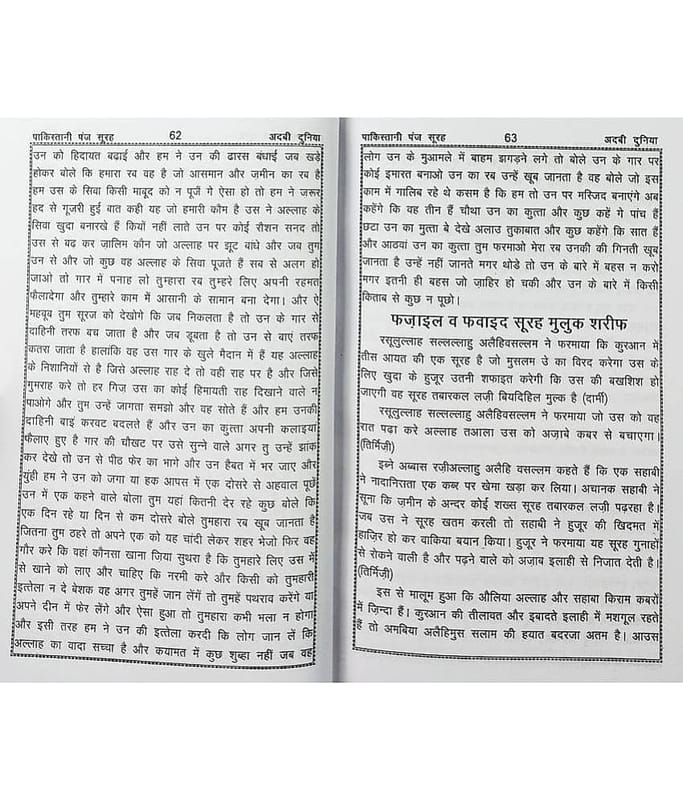 पाकिस्तानी पंज सूरह 62 अदबी दुनिया
उन को हिदायत बढ़ाई और हम ने उन की ढारस बंधाई जब खड़े
होकर बोले कि हमारा रब वह है जो आसमान और ज़मीन का रब है
हम उस के सिवा किसी माबूद को न पूजें गे ऐसा हो तो हम ने जरूर
हद से गूजरी हुई बात कही यह जो हमारी कौम है उस ने अल्लाह के
सिवा खुदा बनारखे हैं कियों नहीं लाते उन पर कोई रौशन सनद तो
उस से बढ कर ज़ालिम कौन जो अल्लाह पर झूट बांधे और जब तुम
उन से और जो कुछ वह अल्लाह के सिवा पूजते हैं सब से अलग हो
जाओ तो गार में पनाह लो तुम्हारा रब तुम्हरे लिए अपनी रहमत
फैलादेगा और तुम्हारे काम में आसानी के सामान बना देगा। और ऐ
महबूब तुम सूरज को देखोगे कि जब निकलता है तो उन के गार से
दाहिनी तरफ बच जाता है और जब डूबता है तो उन से बाएं तरफ
कतरा जाता है हालांकि वह उस गार के खुले मैदान में हैं यह अल्लाह
के निशानियों से है जिसे अल्लाह राह दे तो वही राह पर है और जिसे
गुमराह करे तो हर गिज़ उस का कोई हिमायती राह दिखाने वाले न
पाओगे और तुम उन्हें जागता समझो और वह सोते हैं और हम उनकी
दाहिनी बाइं करवट बदलते हैं और उन का कुत्ता अपनी कलाइया
फैलाए हुए है गार की चौखट पर उसे सुन्ने वाले अगर तु उन्हें झांक
कर देखे तो उन से पीठ फेर का भागे और उन हैबत में भर जाए और
युंही हम ने उन को जगा या हक आपस में एक दोसरे से अहवाल पूछें
उन में एक कहने वाले बोला तुम यहां कितनी देर रहे कुछ बोले कि
एक दिन रहे या दिन से कम दोसरे बोले तुमहारा रब खूब जानता है
जितना तुम ठहरे तो अपने एक को यह चांदी लेकर शहर भेजो फिर वह
गौर करे कि वहां कौनसा खाना जिया सुथरा है कि तुमहारे लिए उस में
से खाने को लाए और चाहिए कि नरमी करे और किसी को तुमहारी
इत्तेला न दे बेशक वह अगर तुमहें जान लेंगें तो तुमहें पथराव करेंगे या
अपने दीन में फेर लेंगे और ऐसा हुआ तो तुमहारा कभी भला न होगा
और इसी तरह हम ने उन की इत्तेला करदी कि लोग जान लें कि
अल्लाह का वादा सच्चा है और कयामत में कुछ शुब्हा नहीं जब वह
पाकिस्तानी पंज सूरह 63 अदबी दुनिया
लोग उन के मुआमले में बाहम झगड़ने लगे तो बोले उन के गार पर
कोई इमारत बनाओ उन का रब उन्हें खूब जानता है वह बोले जो इस
काम में गालिब रहे थे कसम है कि हम तो उन पर मस्जिद बनाएंगे अब
कहेंगे कि वह तीन हैं चौथा उन का कुत्ता और कुछ कहें गे पांच हैं
छटा उन का मुत्ता बे देखे अलाउ तुकाबात और कुछ कहेंगे कि सात हैं
और आठवां उन का कुत्ता तुम फरमाओ मेरा रब उनकी की गिनती खूब
जानता है उन्हें नहीं जानते मगर थोडे तो उन के बारे में बहस न करो
मगर इतनी ही बहस जो ज़ाहिर हो चकी और उन के बारे में किसी
किताब से कुछ न पूछो।
फज़ाइल व फवाइद सूरह मुलुक शरीफ
रसूलुल्लाह सल्लल्लाहु अलैहिवसल्लम ने फरमाया कि कुरआन में
तीस आयत की एक सूरह है जो मुसलम उ का विरद करेगा उस के
लिए खुदा के हुजूर उतनी शफाइत करेगी कि उस की बखशिश हो
जाएगी वह सूरह तबारकल लज़ी बियदिहिल मुल्क है (दार्मी)
रसूलुल्लाह सल्लल्लाहु अलैहिवसल्लम ने फरमाया जो उस को वह
रात पढ़ा करे अल्लाह तआला उस को अज़ाबे कबर से बचाएगा।
(तिर्मिज़ी)
इब्ने अब्बास रज़ीअल्लाहु अलैहि वसल्लम कहते हैं कि एक सहाबी
ने नादानिसता एक कब्र पर खेमा खड़ा कर लिया। अचानक सहाबी ने
सूना कि ज़मीन के अन्दर कोई शख्स सूरह तबारकल लज़ी पढ़रहा है।
जब उस ने सूरह खतम करली तो सहाबी ने हुजूर की खिदमत में
हाज़िर हो कर वाकिया बयान किया। हुजूर ने फरमाया यह सूरह गुनाहों
से रोकने वाली है और पढ़ने वाले को अज़ाब इलाही से निजात देती है।
(तिर्मिज़ी)
इस से मालूम हुआ कि औलिया अल्लाह और सहाबा किराम कबरों
में ज़िन्दा हैं। कुरआन की तीलावत और इबादते इलाही में मशगूल रहते
हैं तो अमबिया अलैहिमुस सलाम की हयात बदरजा अतम है। आउस